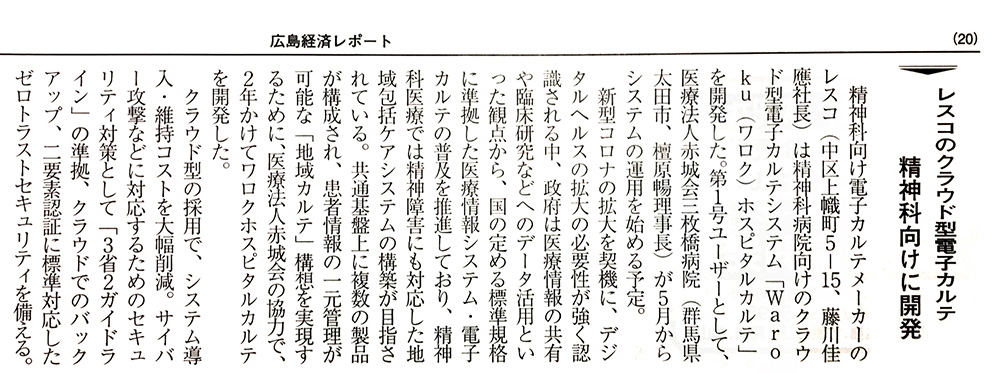 広島経済レポート
(20)
レスコのクラウド型電子カルテ
精神科向けに開発
精神科向け電子カルテメーカーの
レスコ（中区上幟町5―15、藤川佳
應社長）は精神科病院向けのクラウ
ド型電子カルテシステム「Waro
ku（ワロク）ホスピタルカルテ」
を開発した。第1号ユーザーとして、
医療法人赤城会三枚橋病院（群馬県
太田市、檀原暢理事長）が5月から
システムの運用を始める予定。
新型コロナの拡大を契機に、デジ
タルヘルスの拡大の必要性が強く認
識される中、政府は医療情報の共有
や臨床研究などへのデータ活用とい
った観点から、国の定める標準規格
に準拠した医療情報システム・電子
カルテの普及を推進しており、精神
科医療では精神障害にも対応した地
域包括ケアシステムの構築が目指さ
れている。共通基盤上に複数の製品
が構成され、患者情報の一元管理が
可能な「地域カルテ」構想を実現す
るために、医療法人赤城会の協力で、
2年かけてワロクホスピタルカルテ
を開発した。
クラウド型の採用で、システム導
入・維持コストを大幅削減。サイバ
ー攻撃などに対応するためのセキュ
リティ対策として「3省2ガイドラ
イン」の準拠、クラウドでのバック
アップ、二要素認証に標準対応した
ゼロトラストセキュリティを備える。